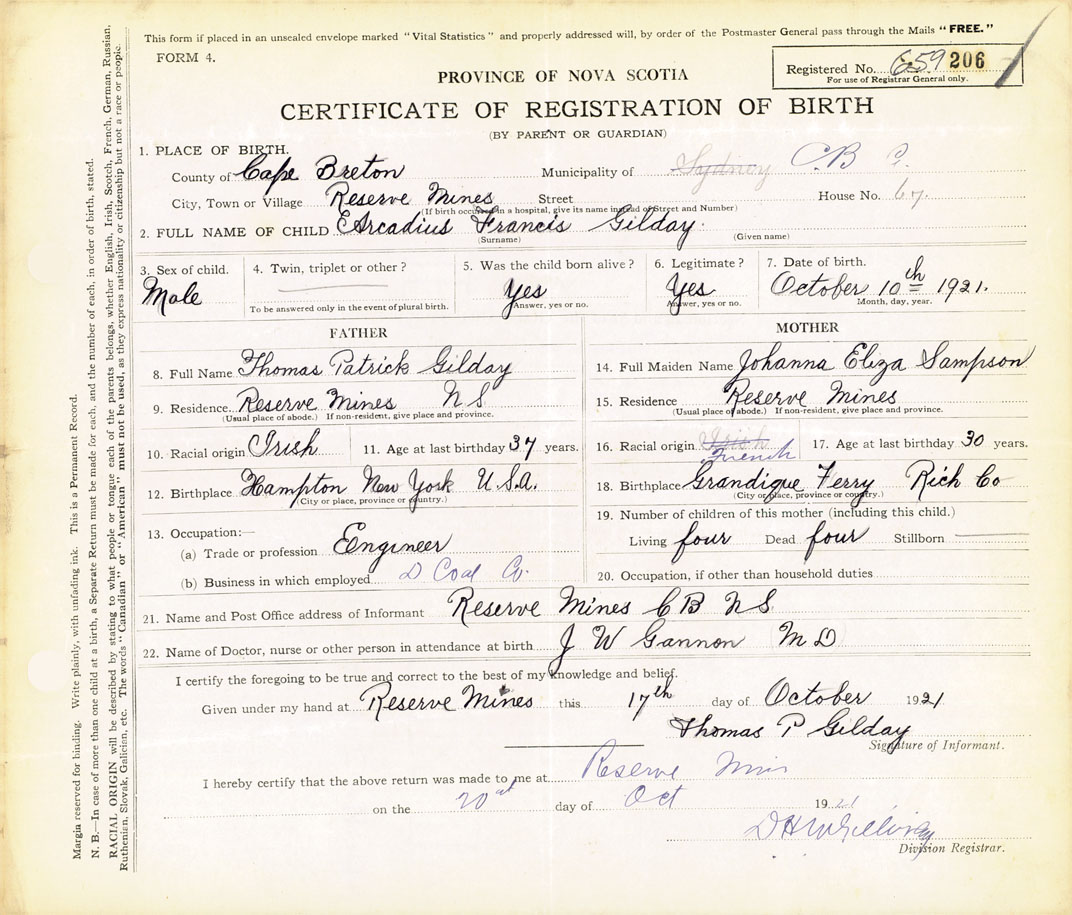 This form if placed in an unsealed envelope marked "Vital Statistics" and properly addressed will, by order of the Postmaster General pass through the Mails "FREE."
FORM 4.
Registered No. 659 206
For use of Registrar General only.
PROVINCE OF NOVA SCOTIA
CERTIFICATE OF REGISTRATION OF BIRTH
(BY PARENT OR GUARDIAN)
1. PLACE OF BIRTH.
County of Cape Breton Municipality of Sydney C B
City, Town or Village Reserve Mines Street House No. 67.
(If birth occurred in a hospital, give its name instead of Street and Number)
2. FULL NAME OF CHILD Arcadius Francis Gilday.
(Surname) (Given name)
3. Sex of child. Male
4. Twin, triplet or other?
To be answered only in the event of plural birth.
5. Was the child born alive? Yes
Answer, yes or no.
6. Legitimate? Yes
Answer, yes or no.
7. Date of birth. October 10th 1921.
Month, day, year.
FATHER
8. Full Name Thomas Patrick Gilday
9. Residence Reserve Mines N S
(Usual place of abode.) If non-resident, give place and province.
10. Racial origin Irish 11. Age at last birthday 37 years.
12. Birthplace Hampton New York U.S.A.
(City or place, province or country.)
13. Occupation:—
(a) Trade or profession Engineer
(b) Business in which employed D Coal Co.
MOTHER
14. Full Maiden Name Johanna Eliza Sampson
15. Residence Reserve Mines
(Usual place of abode.) If non-resident, give place and province.
16. Racial origin Irish French 17. Age at last birthday 30 years.
18. Birthplace Grandique Ferry Rich Co
(City or place, province or country.)
19. Number of children of this mother (including this child.)
Living four Dead four Stillborn
20. Occupation, if other than household duties
21. Name and Post Office address of Informant Reserve Mines C B N S
22. Name of Doctor, nurse or other person in attendance at birth J W Gannon M D
I certify the foregoing to be true and correct to the best of my knowledge and belief.
Given under my hand at Reserve Mines this 17th day of October 1921
Thomas P Gilday
Signature of Informant.
I hereby certify that the above return was made to me at Reserve Mines
on the 20 day of Oct 1921
Division Registrar.
Margin reserved for binding. Write plainly, with unfading ink. This is a Permanent Record.
N. B.—In case of more than one child at a birth, a Separate Return must be made for each, and the number of each, in order of birth, stated.
RACIAL ORIGIN will be described by stating to what people or tongue each of the parents belongs, whether English, Irish, Scotch, French, German, Russian,
Ruthenian, Slovak, Galician, etc. The words "Canadian" or "American" must not be used, as they express nationality or citizenship but not a race or people.